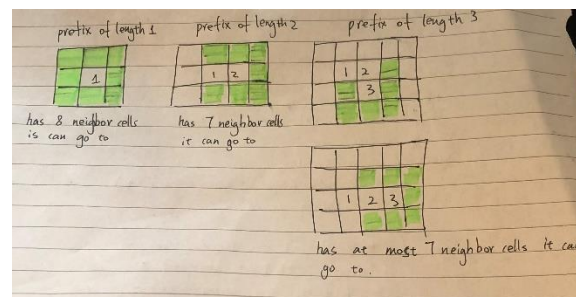 prefix of length 1
1
has 8 neigbor cells
is can go to
prefix of length 2
1 2
has 7 neighbor cells
it can go to
prefix of length 3
1 2
3
1 2 3
has at most 7 neighbor cells it can
go to.